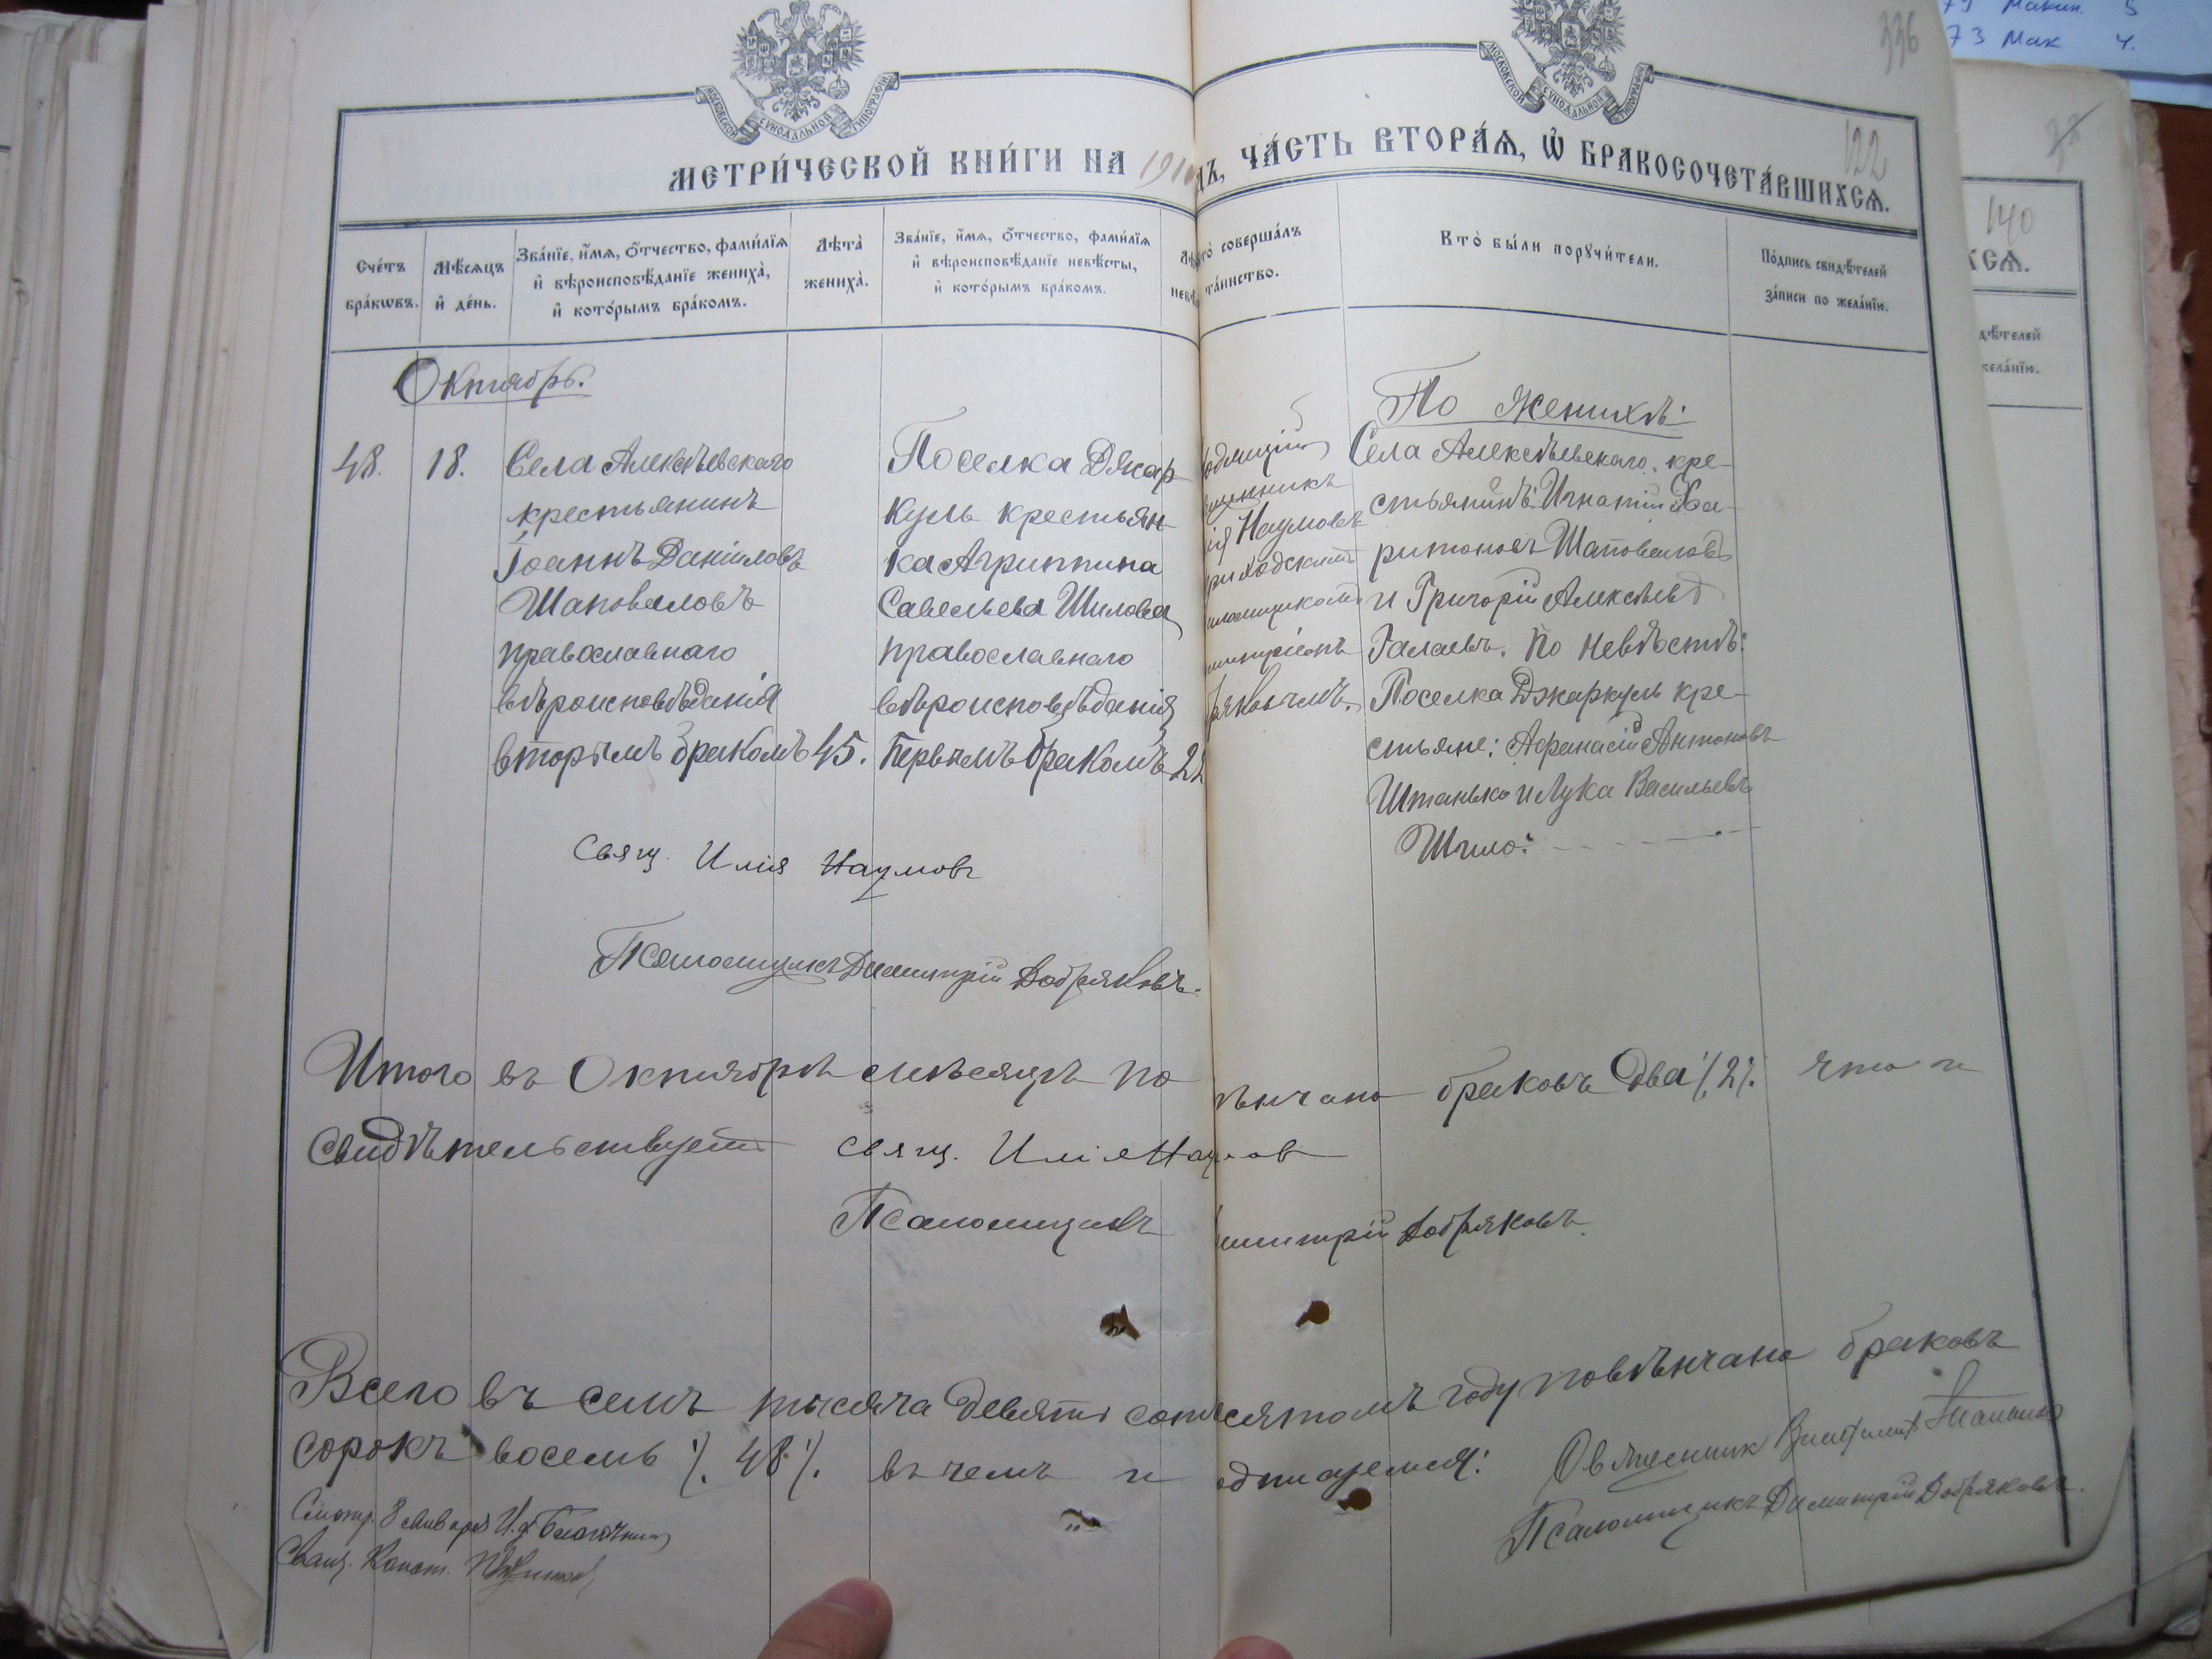 79 Макин. 5
73 Мак 4.
336
122
140
МОСКОВСКОЙ СѴНОДАЛЬНОЙ ТИПОГРАФІИ
МОСКОВСКОЙ СѴНОДАЛЬНОЙ ТИПОГРАФІИ
МЕТРИ́ЧЕСКОЙ КНИ́ГИ НА 1910 ДЪ, ЧА́СТЬ ВТОРА́Ѧ, Ѽ БРАКОСОЧЕТА́ВШИХСѦ.
Сче́тъ бра́кѡвъ.
Мѣ́сѧцъ и҆ де́нь.
Зва́нїе, и҆́мѧ, ѻ҆́тчество, фами́лїѧ и҆ вѣроисповѣ́данїе жениха̀, и҆ кото́рымъ бра́комъ.
Лѣта̀ жениха̀.
Зва́нїе, и҆́мѧ, ѻ҆́тчество, фами́лїѧ и҆ вѣроисповѣ́данїе невѣ́сты, и҆ кото́рымъ бра́комъ.
то̀ соверша́лъ та́инство.
Кто̀ бы́ли порꙋчи́тели.
По́дпись свидѣ́телей за́писи по жела́нїю.
Октябрь.
48.
18.
Села Алексѣевскаго
крестьянинъ
Іоаннъ Даніиловъ
Шаповаловъ
православнаго
вѣроисповѣданія
вторымъ бракомъ
45.
Поселка Джар
куль крестьян-
ка Агриппина
Савельева Шилова
православнаго
вѣроисповѣданія
первымъ бракомъ
22
щенникъ
ія Наумовъ
риходскимъ
аломщикомъ
митріемъ
ряковымъ.
По женихѣ:
Села Алексѣевскаго, кре-
стьянинъ: Игнатій Ха-
ритоновъ Шаповаловъ
и Григорій Алексѣевъ
Галаевъ. По невѣстѣ:
Поселка Джаркуль кре-
стьяне: Афанасій Антоновъ
Штанько и Лука Васильевъ
Шило:
Свящ. Илія Наумовъ
Псаломщикъ Димитрій Добряковъ.
Итого въ Октябрѣ мѣсяцѣ по вѣнчано браковъ два ./. 2 ./. что и
свидѣтельствуетъ свящ. Илія Наумов
Псаломщикъ имитрій Добряковъ.
Всего въ семъ тысяча девять сот десятомъ году повѣнчано браковъ
сорокъ восемь ./. 48 ./. въ чемъ и одписуемся:
Псаломщикъ Димитрій Добряковъ.
Смотр. 8 января И. д. Благочин
Свящ. Конст.